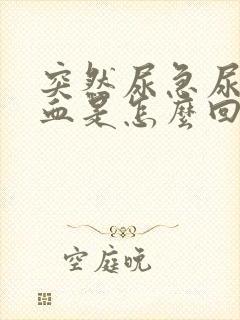 突然尿急尿
血是怎麼回
空庭晚